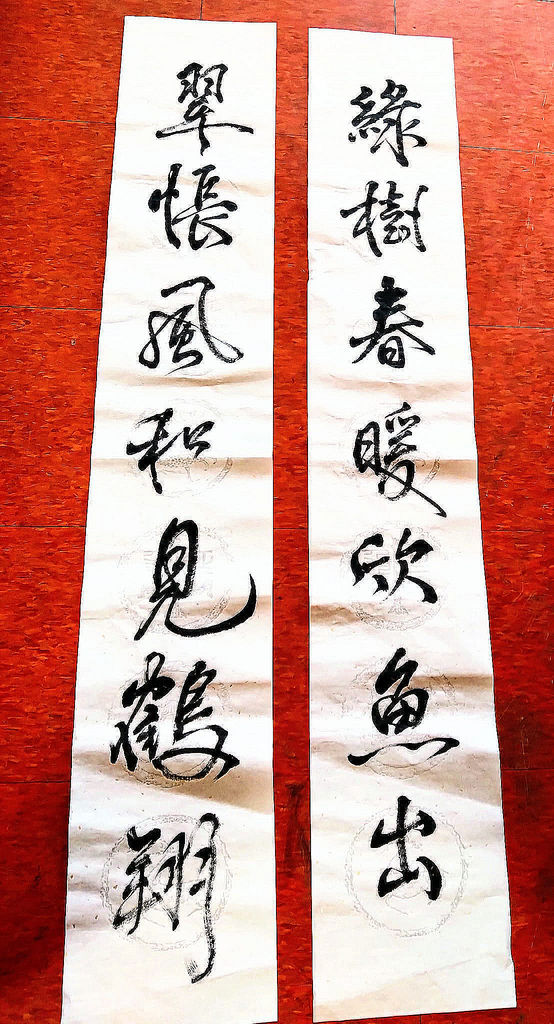 綠樹春暖欣魚出
翠帳風和見鶴翔